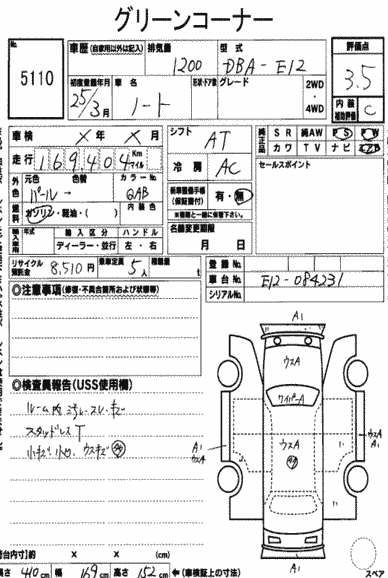 グリーンコーナー
No. 5110
車歴 (自家用以外は記入) 排気量 1200 型式 DBA-E12 評価点 3.5
初度登録年月 25/3月 車名 ノート 形状・ドア数 グレード 2WD・4WD 内装補助評価 C
車検 X年 X月 シフト AT 純正品 SR 純AW PS PW
走行 169,404 Km マイル 冷房 AC カワ TV ナビ エアB
外色 元色 パール → 色替 カラーNo. QAB 新車整備手帳(保証書付) 有・無 セールスポイント
燃料 ガソリン・軽油・( ) 内装色 ※書類と一緒に保管下さい。
輸入車用 年式 輸入区分 ディーラー・並行 ハンドル 左・右 名義変更期限 月 日
リサイクル預託金 8,510円 乗車定員 5人 積載量 t 登録No.
車台No. E12-084231
シリアルNo.
◎注意事項 (修復・不具合箇所および状態等)
◎検査員報告(USS使用欄)
ルーム内 ヨゴレ・スレ・キズ
スタッドレスT
小キズ 小凹 ウスキズ
A1
ウスA
ワイパーA
A1 ウスA
ウスA
A1 ウスA
A1
スペア
荷台内寸 約 x x (cm)
長さ 410cm 幅 169cm 高さ 152cm ←(車検証上の寸法)